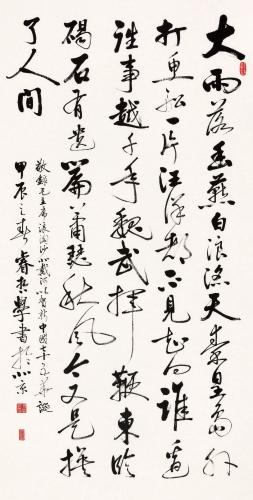 大雨落幽燕白浪滔天秦皇岛外
打鱼船一片汪洋都不见知向谁边
往事越千年魏武挥鞭东临
碣石有遗篇萧瑟秋风今又是换
了人间
敬录毛主席浪淘沙北戴河以贺新中国七十五华诞
甲辰之春睿哲学书于北京